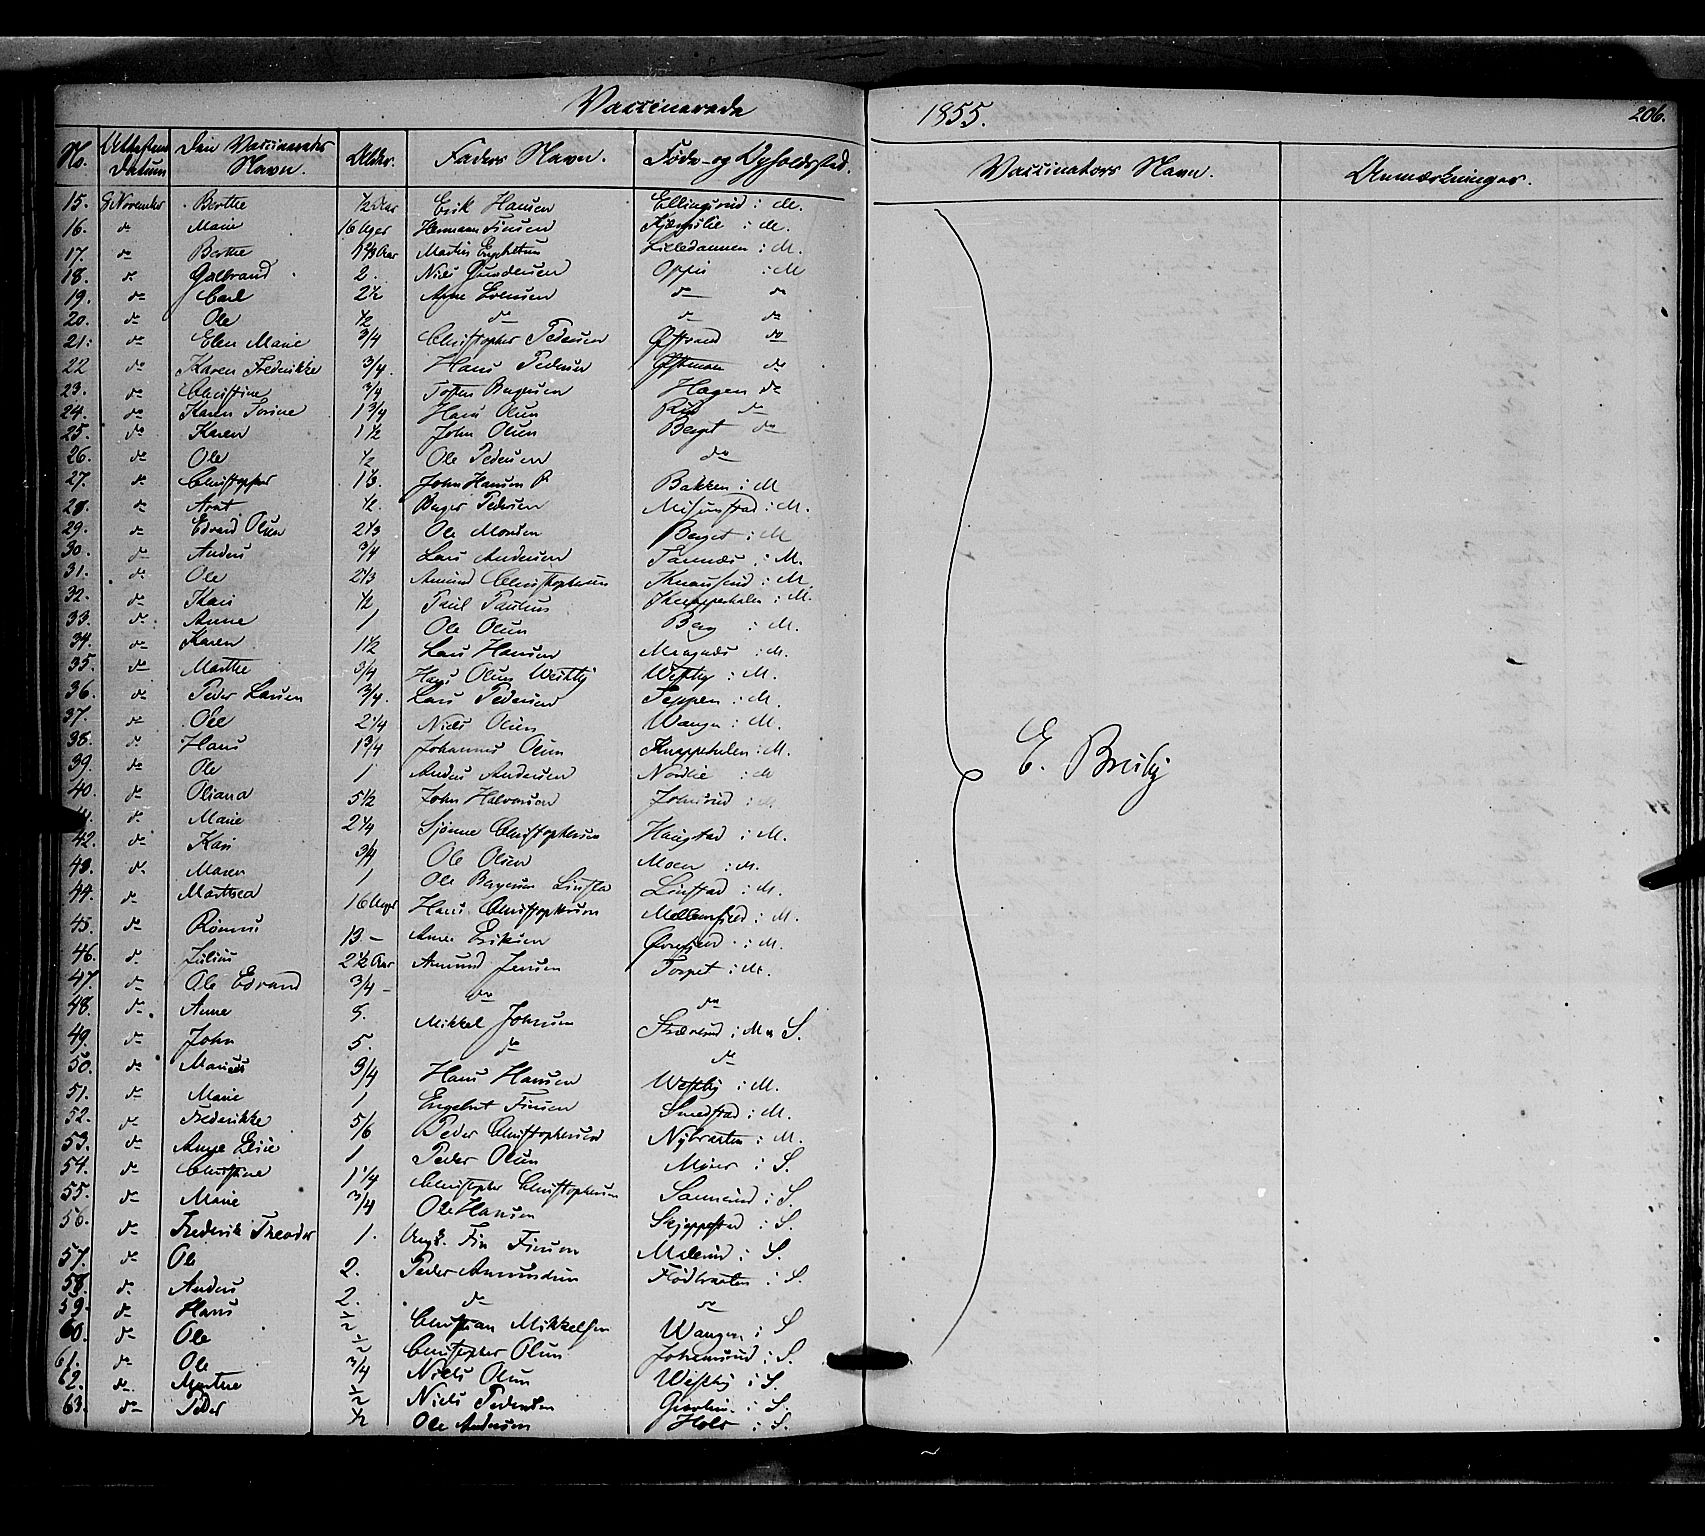 Vaccinerede 1855. 206.
No. Attestens Datum Den Vaccineredes Navn. Alder. Faders Navn. Føde- og Opholdssted. Vaccinators Navn. Anmærkninger.
15. 8 November Berthe ½ Aar Erik Hansen Ellingsrud i M.
16. do Marie 16 Uger Hermann Finsen Kjærnslie i M.
17. do Berthe Aar Martin Lilledammen i M.
18. do Gulbrand 2. Niels Gundersen Oppie i M
19. do Carl 2½ Arne do do
20. do Ole ½ do do do
21. do Elen Marie ¾ Christopher Pedersen do
22 do Karen Frederikke ¾. Hans Pedersen do
23. do Christine ¾ Torsten Bergersen Hagen do
24. do Karen Torine 1¾ Hans Olsen Rud do
25. do Karen 1½ John Olsen Berget do
26. do Ole ½ Ole Pedersen do
27. do Christopher 1⅓. John Hansen Bakken i M
28. do Arnt ½. Berger Pedersen i M.
29. do Edvard Olsen 2⅓ Ole Monsen Berget i M
30. do Anders ¾ Lars Andersen i M.
31. do Ole 2⅓ Amund Christophersen Knausrud i M
32. do Kari ½ Paul Paulsen Knappehalen i M.
33. do Anne 1 Ole Olsen Berg i M.
34. do Karen 1½ Lars Hansen i M.
35. do Marthe ¾ Hans Olsen Westby Westby i M.
36. do Peder Larsen ¾. Lars Pedersen Seppen i M.
37. do Ole 2¼ Niels Olsen Wangen i M.
38. do Hans 1¾ Johannes Olsen Knappehalen i M.
39. do Ole 1 Anders Andersen Nordlie i M
40. do Oliana 5½ John Halvorsen Johnsrud i M
41. do Marie 2¼ Sjønne Christophersen Haugstad i M.
42. do Kari ¾ Ole Olsen Moen i M.
43. do Maren 1 Ole Bergersen Linstad i M.
44. do Mathea 16 Uger Hans Christophersen i M.
45. do 13 - Arne Eriksen i M.
46. do Julius 2½ Aar Amund Jensen Torpet i M.
47. do Ole Edvard ¾ - do do
48. do Anne 8. Mikkel Johnsen i M & S.
49. do John 5. do do
50. do ¾ Hans Hansen Westby i M.
51. do Marie 1 Engebret Finsen Smedstad i M.
52. do Frederikke 5/6 Peder Christophersen Nybraaten i M.
53. do 1 Peder Olsen i S.
54. do Christine 1¼ Christopher Christophersen i S.
55. do Marie ¾ Ole Hansen Skjeppestad i S.
56. do Frederik Theodor 1. Ungk. Fin Finsen i S.
57. do Ole 2. Peder Amundsen Flodbraaten i S.
58. do Anders 2. do do
59. do Hans ½ Christian Mikkelsen Wangen i S
60. do Ole ½ Christopher Olsen i S.
61. do Ole ¾ Niels Olsen Westby i S.
62. do. Marthe ½ Niels Pedersen i S.
63. do Peder ½ Ole Andersen Hole i S.
E. Breiby